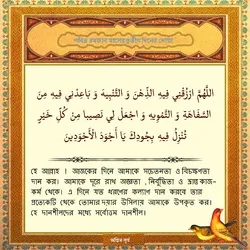 পবিত্র রমজান মাসের তৃতীয় দিনের দোয়া
اللَّهُمَّ ارْزُقْنِي فِيهِ الذِّهْنَ وَ التَّنْبِيهَ وَ بَاعِدْنِي فِيهِ مِنَ
السَّفَاهَةِ وَ التَّمْوِيهِ وَ اجْعَلْ لِي نَصِيبا مِنْ كُلِّ خَيْرٍ
تُنْزِلُ فِيهِ بِجُودِكَ يَا أَجْوَدَ الْأَجْوَدِينَ
হে আল্লাহ ! আজকের দিনে আমাকে সচেতনতা ও বিচক্ষণতা
দান কর। আমাকে দূরে রাখ অজ্ঞতা , নির্বুদ্ধিতা ও ভ্রান্ত কাজ-
কর্ম থেকে। এ দিনে যত ধরণের কল্যাণ দান করবে তার
প্রত্যেকটি থেকে তোমার দয়ার উসিলায় আমাকে উপকৃত কর।
হে দানশীলদের মধ্যে সর্বোত্তম দানশীল।